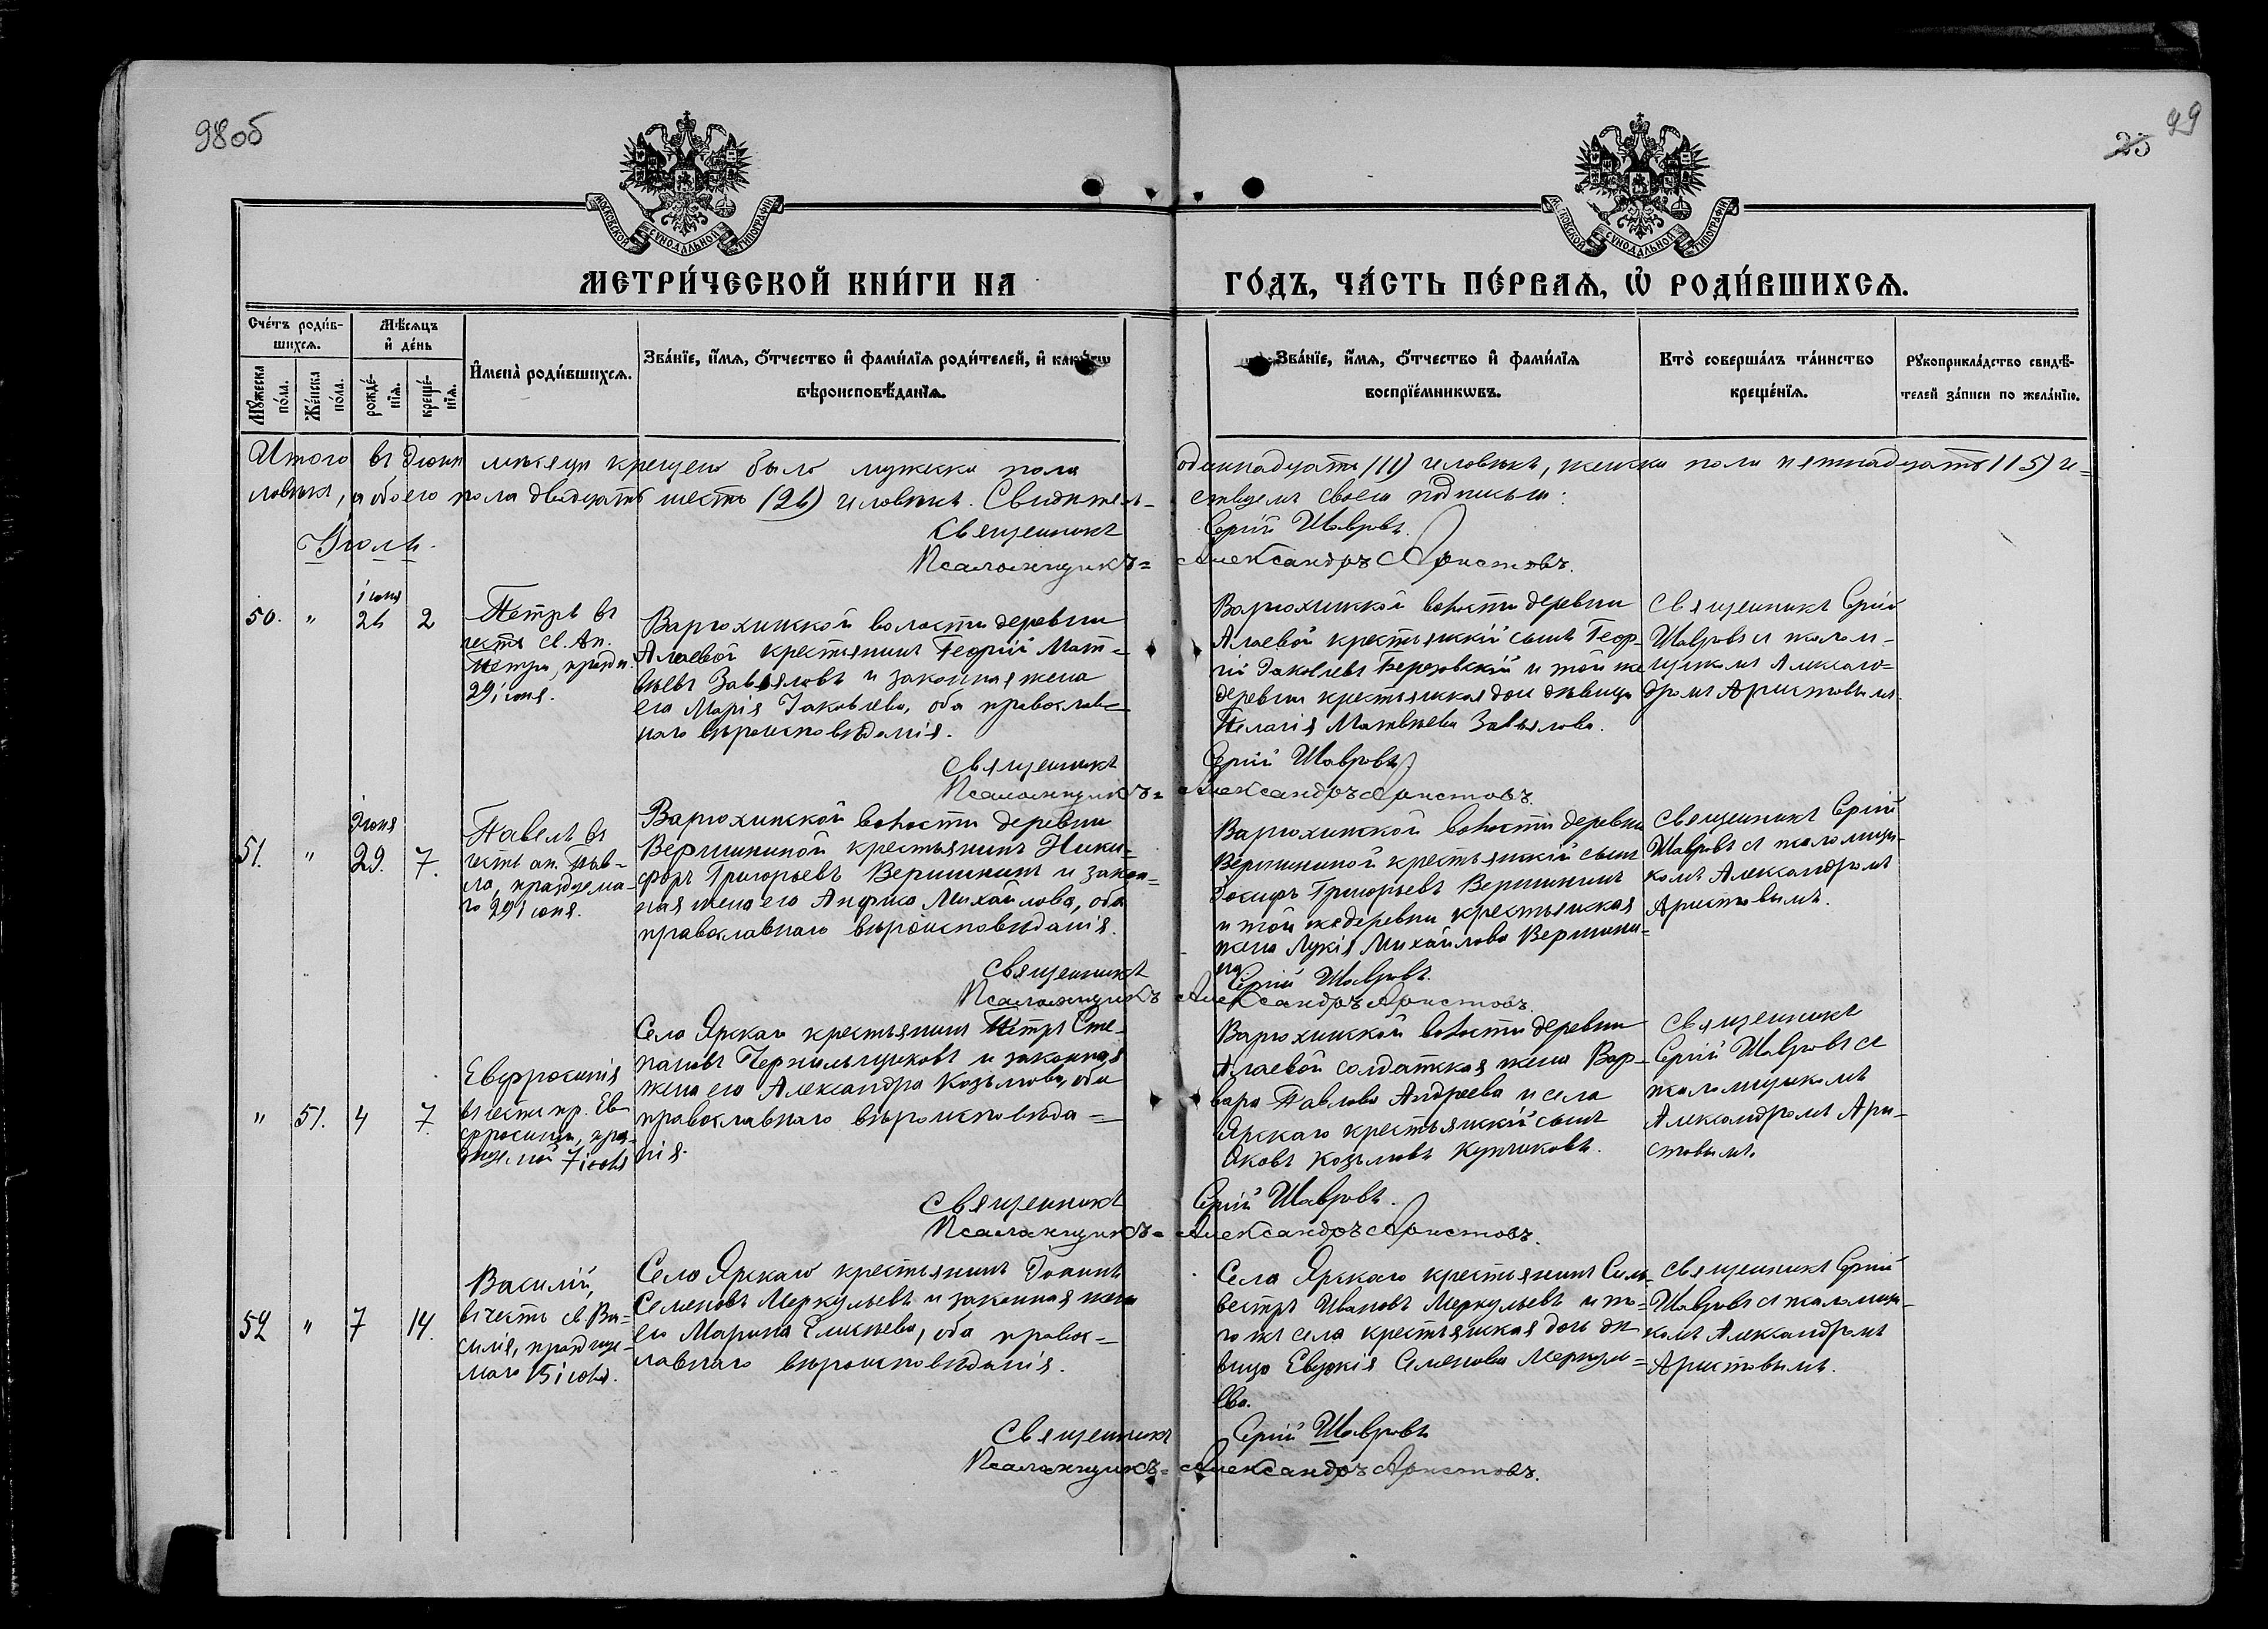 98об
99
25
МОСКОВСКОЙ СУНОДАЛЬНОЙ ТИПОГРАФІИ
МОСКОВСКОЙ СУНОДАЛЬНОЙ ТИПОГРАФІИ
МЕТРИ́ЧЕСКОЙ КНИ́ГИ НА
ГО́ДЪ, ЧА́СТЬ ПЕ́РВАѦ, Ѡ҆ РОДИ́ВШИХСѦ.
Счётъ роди́в-
шихсѧ.
Мꙋ́жеска по́ла.
Же́нска по́ла.
Мѣ́сѧцъ
и҆ де́нь
рожде́-
нїѧ.
креще́-
нїѧ.
И҆мена̀ роди́вшихсѧ.
Зва́нїе, и҆́мѧ, ѻ҆́тчество и҆ фами́лїѧ роди́телей, и҆ како́гѡ
вѣроисповѣ́данїѧ.
Зва́нїе, и҆́мѧ, ѻ҆́тчество и҆ фами́лїѧ
воспрїе́мникѡвъ.
Кто̀ соверша́лъ та́инство
креще́нїѧ.
Рꙋкоприкла́дство свидѣ́-
телей за́писи по жела́нїю.
Итого въ Іюнѣ мѣсяцѣ крещено было мужеска пола
одиннадцать (11) человѣкъ, женска пола пятнадцать (15) че=
ловѣкъ, а обоего пола двадцать шесть (26) человѣкъ. Свидѣтель-
ствуемъ своею подписью:
Священникъ
Сергій Шавровъ.
Псаломщикъ=
Александръ Аристовъ.
Іюль.
50.
"
іюня
26
2
Петръ въ
честь св. Ап.
Петра, праздн.
29 іюня.
Варюхинской волости деревни
Алаевой крестьянинъ Георгій Мат=
вѣевъ Завьяловъ и законная жена
его Марія Іаковлева, оба православ=
наго вѣроисповѣданія.
Варюхинской волости деревни
Алаевой крестьянскій сынъ Геор-
гій Іаковлевъ Березовскій и той же
деревни крестьянская дочь дѣвица
Пелагія Матвѣева Завьялова.
Священникъ Сергій
Шавровъ съ псалом-
щикомъ Алексан=
дромъ Аристовымъ.
Священникъ
Сергій Шавровъ
Псаломщикъ=
Александръ Аристовъ.
51.
"
Іюня
29.
7.
Павелъ въ
честь ап. Пав-
ла, празднуема-
го 29 іюня.
Варюхинской волости деревни
Вершининой крестьянинъ Ники-
форъ Григорьевъ Вершининъ и закон=
ная жена его Анфиса Михайлова, оба
православнаго вѣроисповѣданія.
Варюхинской волости деревни
Вершининой крестьянскій сынъ
Іосифъ Григорьевъ Вершининъ
и той же деревни крестьянская
жена Лукія Михайлова Вершини-
на.
Священникъ Сергій
Шавровъ съ псаломщи-
комъ Александромъ
Аристовымъ.
Священникъ
Сергій Шавровъ.
Псаломщикъ
Александръ Аристовъ.
"
51.
4
7.
Евфросинія
въ честь пр. Ев-
фросиніи, праз-
днуемой 7 іюля
Села Ярскаго крестьянинъ Петръ Сте-
пановъ Чернильщиковъ и законная
жена его Александра Козьмова, оба
православнаго вѣроисповѣда=
нія.
Варюхинской волости деревни
Алаевой солдатская жена Вар-
вара Павлова Андреева и села
Ярскаго крестьянскій сынъ
Яковъ Козьмовъ Купчиковъ.
Священникъ
Сергій Шавровъ съ
псаломщикомъ
Александромъ Ари-
стовымъ.
Священникъ
Сергій Шавровъ.
Псаломщикъ=
Александръ Аристовъ.
52
"
7
14.
Василій,
въ честь св. Ва-
силія, празднуе-
маго 15 іюля.
Села Ярскаго крестьянинъ Іоаннъ
Семеновъ Меркульевъ и законная жена
его Марина Елисѣева, оба правос=
лавнаго вѣроисповѣданія.
Села Ярскаго крестьянинъ Силь-
вестръ Ивановъ Меркульевъ и то-
го же села крестьянская дочь дѣ-
вица Евдокія Семенова Меркуль=
ева.
Священникъ Сергій
Шавровъ съ псаломщи-
комъ Александромъ
Аристовымъ.
Священникъ
Сергій Шавровъ
Псаломщикъ=
Александръ Аристовъ.